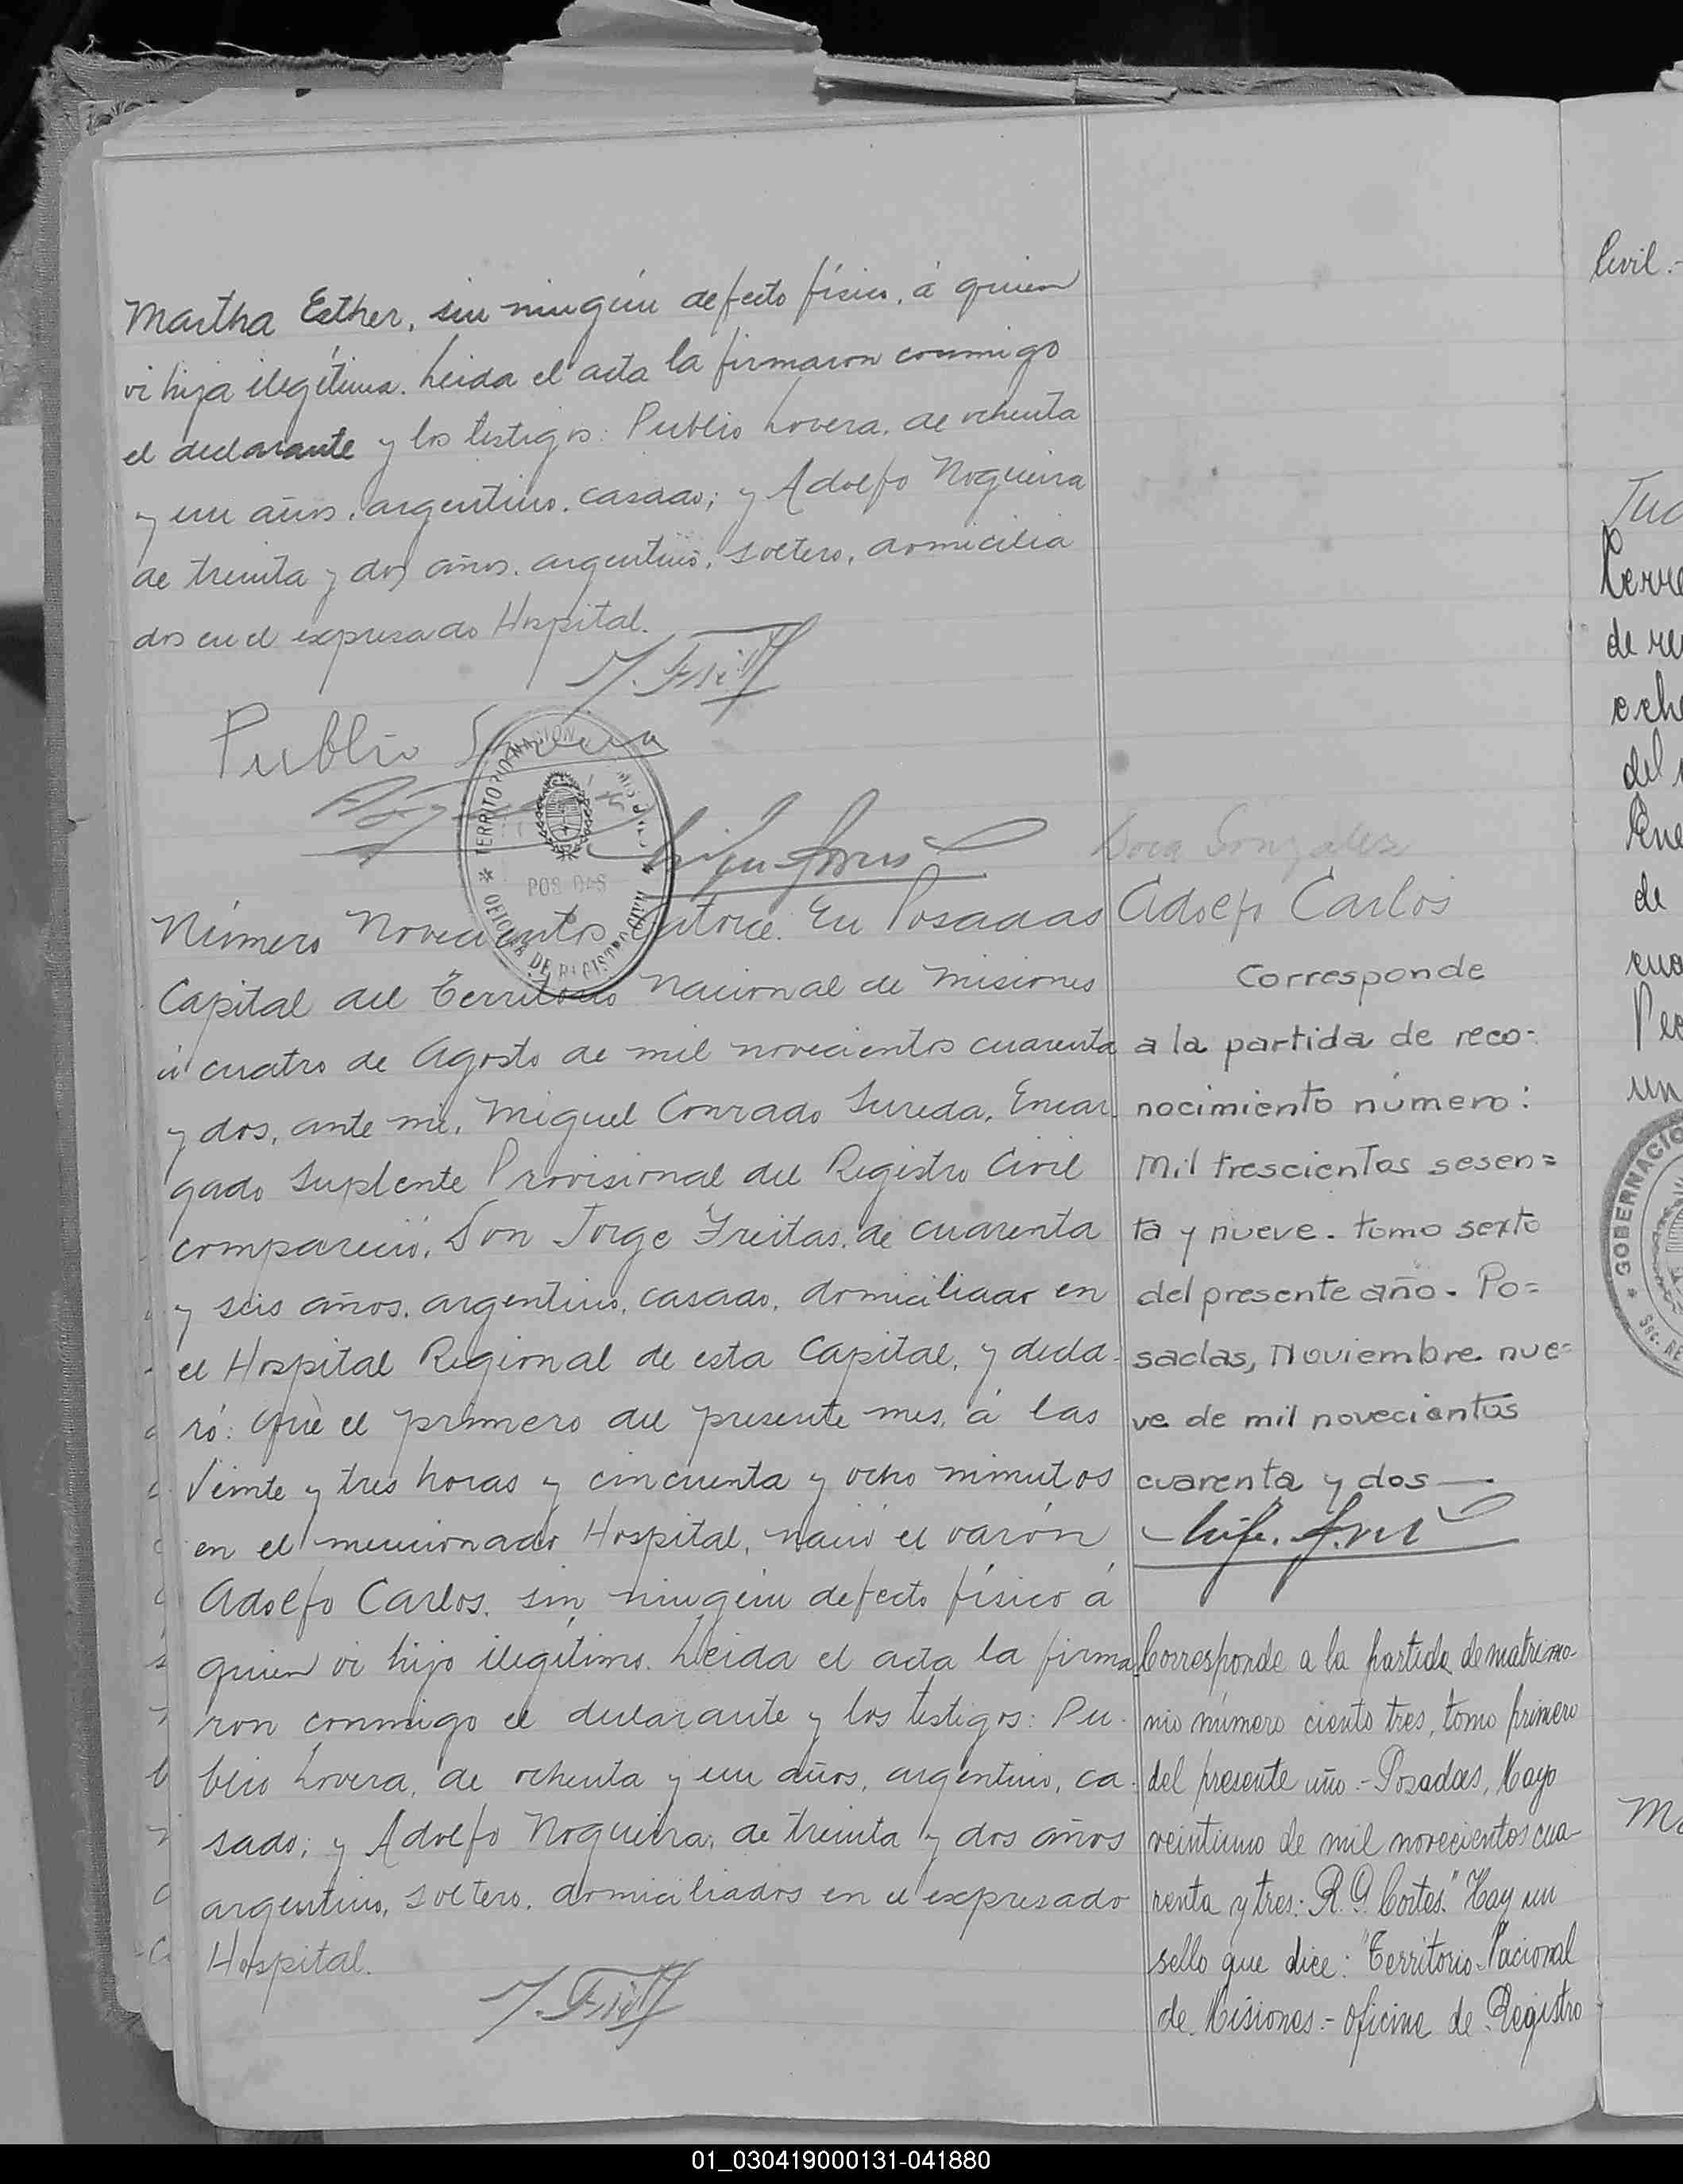 Martha Esther, sin ningún defecto físico, á quien
vi hija ilegítima. Leida el acta la firmaron conmigo
el declarante y los testigos: Publio Lovera, de ochenta
y un años, argentino, casado; y Adolfo Nogueira
de treinta y dos años, argentino, soltero, domicilia
dos en el expresado Hospital.
Publio
TERRITORIO NACIONAL
POSADAS
OFICINA DE REGISTRO
Número Novecientos catorce. En Posadas
Capital del Territorio Nacional de Misiones
á cuatro de Agosto de mil novecientos cuarenta
y dos, ante mí, Miguel Conrado Sureda, Encar
gado Suplente Provisional del Registro Civil
compareció, Don Jorge Freitas, de cuarenta
y seis años, argentino, casado, domiciliado en
el Hospital Regional de esta Capital, y decla-
ró: Què el primero del presente mes, á las
Veinte y tres horas y cincuenta y ocho minutos
en el mencionado Hospital, nació el varón
Adolfo Carlos, sin ningún defecto físico á
quien vi hijo ilegítimo. Leida el acta la firma
ron conmigo el declarante y los testigos: Pu-
blio Lovera, de ochenta y un años, argentino, ca-
sado; y Adolfo Nogueira, de treinta y dos años
argentino, soltero, domiciliados en el expresado
Hospital.
Gonzalez
Adolfo Carlos
Corresponde
a la partida de reco-
nocimiento número:
Mil trescientos sesen=
ta y nueve. tomo sexto
del presente año. Po=
sadas, Noviembre nue=
ve de mil novecientos
cuarenta y dos —
Corresponde a la partida de matrimo-
nio número ciento tres, tomo primero
del presente año.- Posadas, Mayo
veintiuno de mil novecientos cua-
renta y tres: R. O. Cortes." Hay un
sello que dice: "Territorio Nacional
de Misiones.- Oficina de Registro
Civil.-
de
del
de
un
GOBERNACIO
01_030419000131-041880